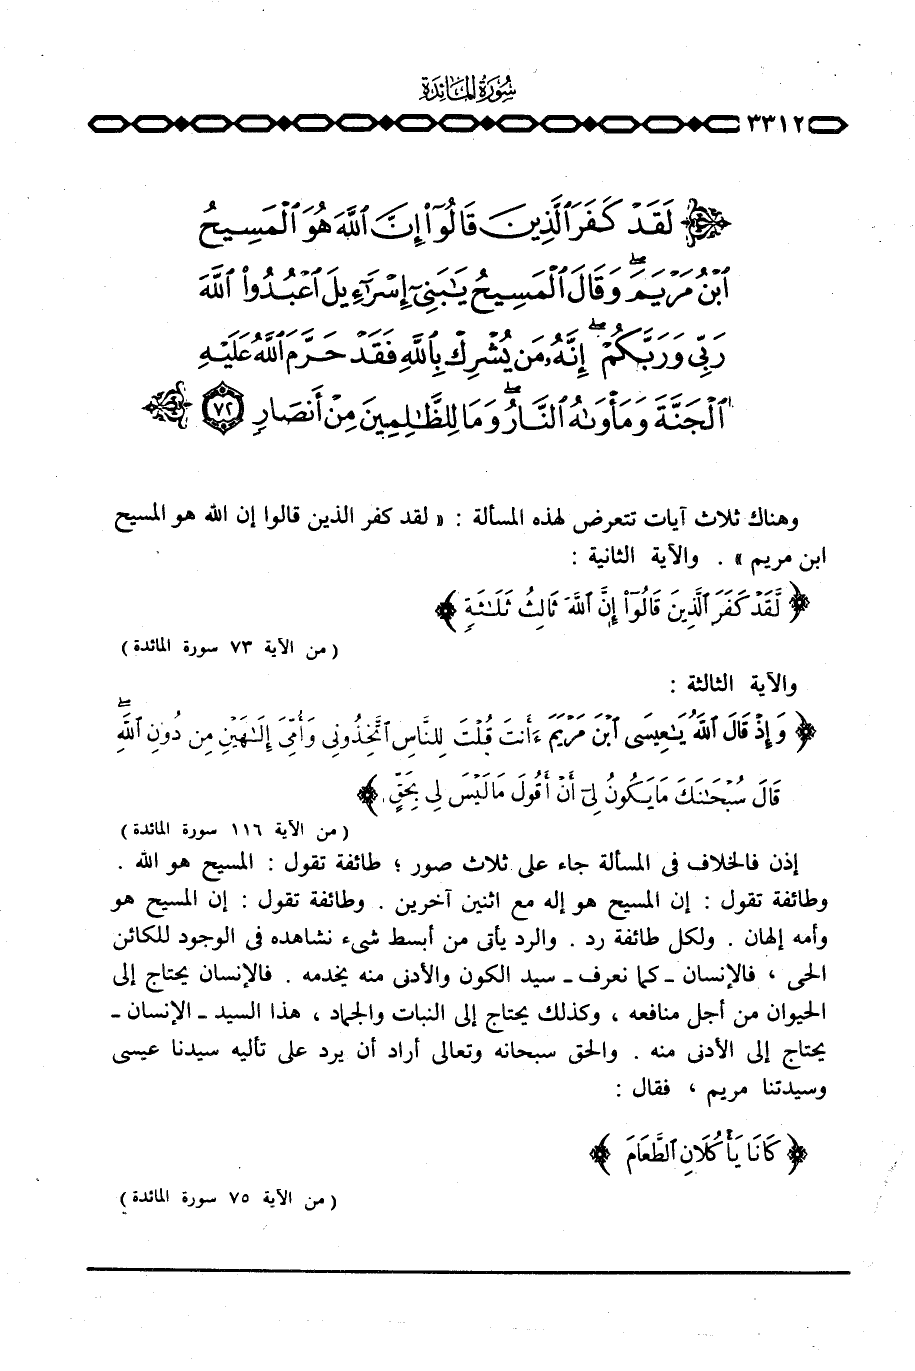 سُورَةُ المَائِدَةِ
٣٣١٢
لَقَدْ كَفَرَ ٱلَّذِينَ قَالُوٓا۟ إِنَّ ٱللَّهَ هُوَ ٱلْمَسِيحُ
ٱبْنُ مَرْيَمَ ۖ وَقَالَ ٱلْمَسِيحُ يَٰبَنِىٓ إِسْرَٰٓءِيلَ ٱعْبُدُوا۟ ٱللَّهَ
رَبِّى وَرَبَّكُمْ ۖ إِنَّهُۥ مَن يُشْرِكْ بِٱللَّهِ فَقَدْ حَرَّمَ ٱللَّهُ عَلَيْهِ
ٱلْجَنَّةَ وَمَأْوَىٰهُ ٱلنَّارُ ۖ وَمَا لِلظَّٰلِمِينَ مِنْ أَنصَارٍ ٧٢
وهناك ثلاث آيات تتعرض لهذه المسألة : « لقد كفر الذين قالوا إن الله هو المسيح
ابن مريم » . والآية الثانية :
﴿ لَّقَدْ كَفَرَ ٱلَّذِينَ قَالُوٓا۟ إِنَّ ٱللَّهَ ثَالِثُ ثَلَٰثَةٍ ﴾
( من الآية ٧٣ سورة المائدة )
والآية الثالثة :
﴿ وَإِذْ قَالَ ٱللَّهُ يَٰعِيسَى ٱبْنَ مَرْيَمَ ءَأَنتَ قُلْتَ لِلنَّاسِ ٱتَّخِذُونِى وَأُمِّىَ إِلَٰهَيْنِ مِن دُونِ ٱللَّهِ ۖ
قَالَ سُبْحَٰنَكَ مَا يَكُونُ لِىٓ أَنْ أَقُولَ مَا لَيْسَ لِى بِحَقٍّ ﴾
( من الآية ١١٦ سورة المائدة )
إذن فالخلاف فى المسألة جاء على ثلاث صور ؛ طائفة تقول : المسيح هو الله .
وطائفة تقول : إن المسيح هو إله مع اثنين آخرين . وطائفة تقول : إن المسيح هو
وأمه إلهان . ولكل طائفة رد . والرد يأتى من أبسط شىء نشاهده فى الوجود للكائن
الحى ، فالإنسان ـ كما نعرف ـ سيد الكون والأدنى منه يخدمه . فالإنسان يحتاج إلى
الحيوان من أجل منافعه ، وكذلك يحتاج إلى النبات والجماد ، هذا السيد ـ الإنسان ـ
يحتاج إلى الأدنى منه . والحق سبحانه وتعالى أراد أن يرد على تأليه سيدنا عيسى
وسيدتنا مريم ، فقال :
﴿ كَانَا يَأْكُلَانِ ٱلطَّعَامَ ﴾
( من الآية ٧٥ سورة المائدة )